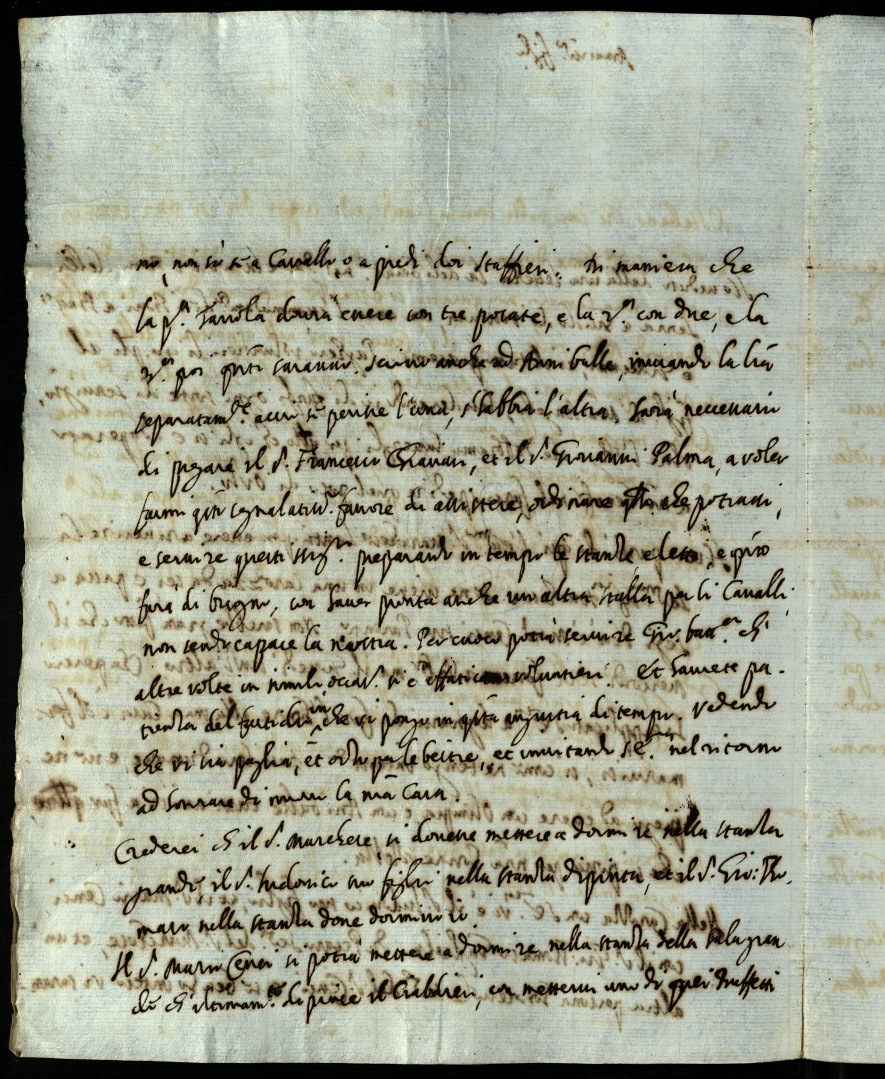 no, non sò se a Cavallo o a piedi doi staffieri. Di maniera che
la p.ª Tavola dovrà essere con tre posate, e la 2.ª con due, e la
3.ª poi q̃sti saranno. Scrivo anche ad Annibale, inviando la lr̃a
separatam.te acciò se perisse l'una, s'habbia l'altra. Sarà necessario
di pregare il S. Francesco Graviani, et il S. Giovanni Palma, a voler
farmi q̃sto segnalatiss.º favore di assistere, ordinare q̃llo che potranno,
e servire questi sig.ri preparando in tempo le stanze, e letti, e q̃nto
farà di bisogno, con haver pronta anche un'altra stalla per li Cavalli
non sendo capace la nostra. Per cuoco potrà servire Gio: batt.a ch'
altre volte in simili occas.i si è affaticato volontieri. Et havrete pa-
tienza del fastidio in che vi pongo in q̃sta angustia di tempo. Vedendo
che vi sia paglia, et orzo per le bestie, et invitando S. E. nel ritorno
ad honorare di nuovo la mia Casa.
Crederei ch'il S. Marchese si dovesse mettere a dormire nella stanza
grande, il S. Ludovico suo figlio nella stanza dipinta, et il S. Gio: Tho-
maso nella stanza dove dormivo io
Il S. Mario Cenci si potrà mettere a dormire nella stanza della Sala gran
de ch'ultimam.te dipinse il Ciabdieri, con mettervi uno di quei